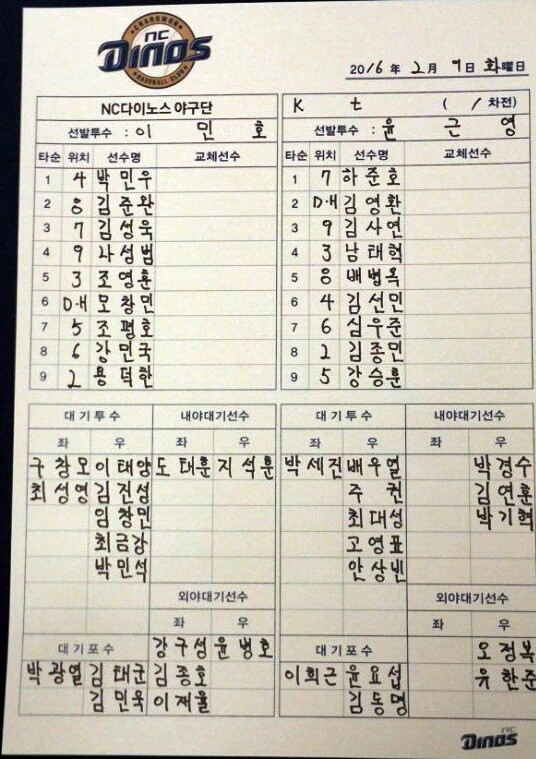 CHANGWON
NC
DINOS
BASEBALL CLUB
2016 년 2 월 9 일 화요일
NC다이노스 야구단
선발투수 : 이 민 호
타순 위치 선수명 교체선수
1 4 박민우
2 8 김준완
3 7 김성욱
4 9 나성범
5 3 조영훈
6 D·H 모창민
7 5 조평호
8 6 강민국
9 2 용덕한
K t ( / 차전)
선발투수 : 윤 근 영
타순 위치 선수명 교체선수
1 7 하준호
2 D·H 김영환
3 9 김사연
4 3 남태혁
5 8 배병옥
6 4 김선민
7 6 심우준
8 2 김종민
9 5 강승훈
대기투수 내야대기선수
좌 우 좌 우
구창모 이태양 도태훈 지석훈
최성영 김진성
임창민
최금강
박민석
외야대기선수
좌 우
대기포수 강구성 윤병호
박광열 김태군 김종호
김민욱 이재율
대기투수 내야대기선수
좌 우 좌 우
박세진 배우열 박경수
주 권 김연훈
최대성 박기혁
고영표
안상빈
외야대기선수
좌 우
대기포수 오정복
이희근 윤요섭 유한준
김동명
NC
DINOS